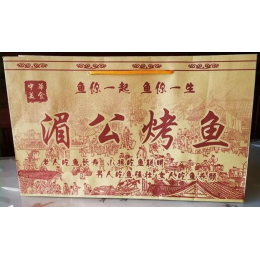 中华
美食
鱼你一起 鱼你一生
湄公烤鱼
老人吃鱼长寿 小孩吃鱼聪明
男人吃鱼强壮 女人吃鱼养颜